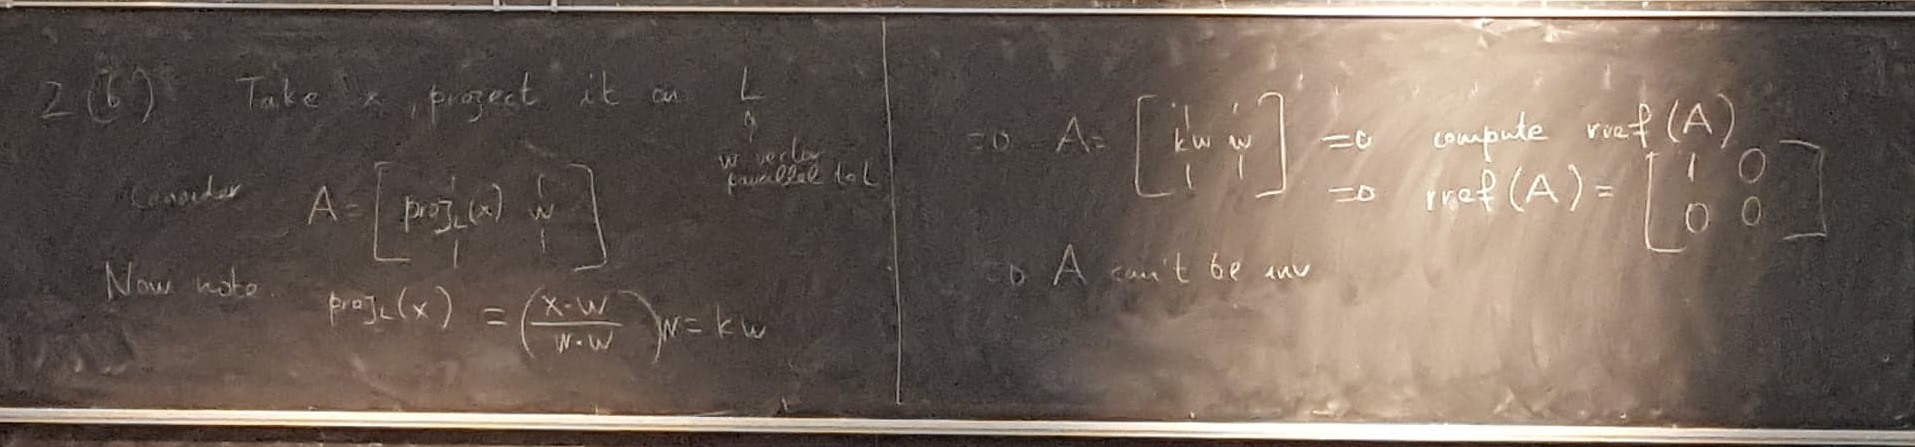 2(b) Take x, project it on L
w vector
parallel to L
Consider A = [ proj_L(x) w ]
Now note. proj_L(x) = (x·w / w·w) w = kw
=> A = [ kw w ] => compute rref(A)
=> rref(A) = [ 1 0
0 0 ]
=> A can't be inv